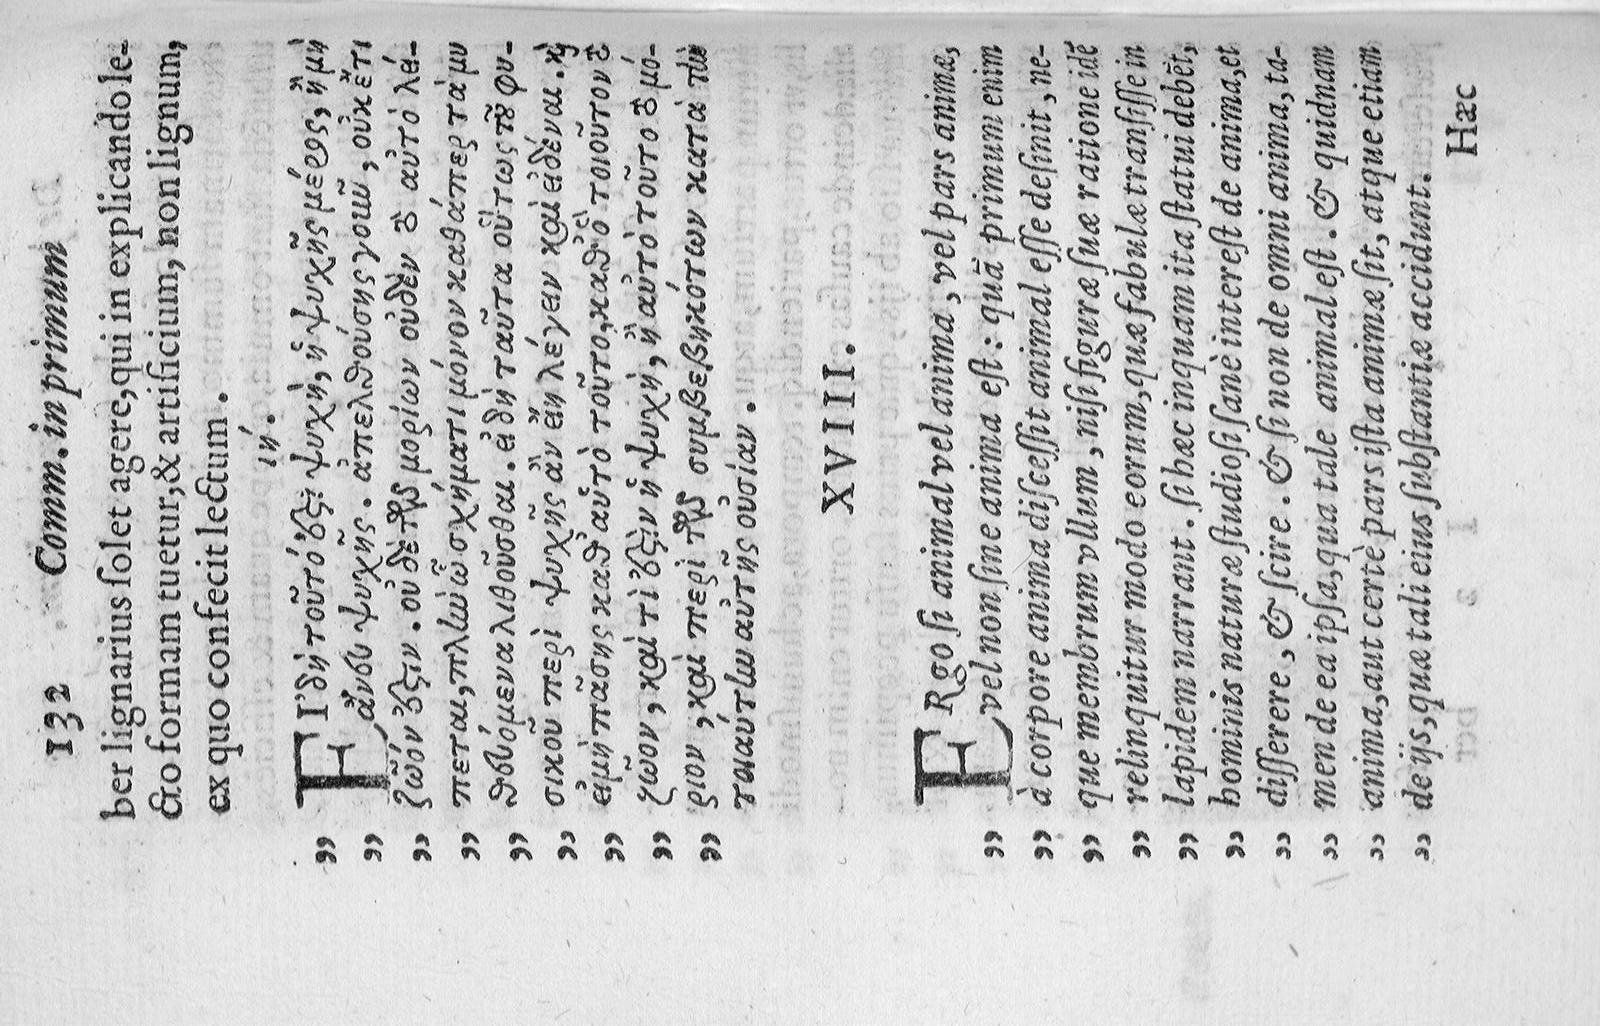 132 Comm. in primum
ber lignarius solet agere, qui in explicando le-
cto formam tuetur, & artificium, non lignum,
ex quo confecit lectum.
ιή.
ΕΙ' δὴ τοῦτό ἐστι ψυχὴ, ἢ ψυχῆς μέρος, ἢ μὴ
„ ἄνευ ψυχῆς. ἀπελθούσης γοῦν, οὐκ ἔτι
„ ζῶόν ἐστιν. οὐδὲ τῶν μορίων οὐδὲν τὸ αὐτὸ λεί-
„ πεται, πλὴν τῷ σχήματι μόνον καθάπερ τὰ μυ
„ θευόμενα λιθοῦσθαι. εἰ δὴ ταῦτα οὕτως τοῦ φυ-
„ σικοῦ περὶ ψυχῆς ἂν εἴη λέγειν καὶ εἰδέναι. καὶ
„ εἰ μὴ πάσης καθ' αὑτὸ τοῦτο, καθ' ὃ τοιοῦτον τὸ
„ ζῶον, καὶ τί ἐστιν ἡ ψυχὴ, ἢ αὐτὸ τοῦτο τὸ μό-
„ ριον, καὶ περὶ τῶν συμβεβηκότων κατὰ τὴν
„ τοιαύτην αὐτῆς οὐσίαν.
XVIII.
„ ERgo si animal vel anima, vel pars animæ,
„ vel non sine anima est: quā primum enim
„ à corpore anima discessit animal esse desinit, ne-
„ que membrum vllum, nisi figuræ suæ ratione idē
„ relinquitur modo eorum, quæ fabulæ transisse in
„ lapidem narrant. si hæc inquam ita statui debēt,
„ hominis naturæ studiosi sanè interest de anima, et
„ disserere, & scire. & si non de omni anima, ta-
„ men de ea ipsa, qua tale animal est. & quidnam
„ anima, aut certè pars ista animæ sit, atque etiam
„ de ijs, quæ tali eius substantiæ accidunt.
Hæc